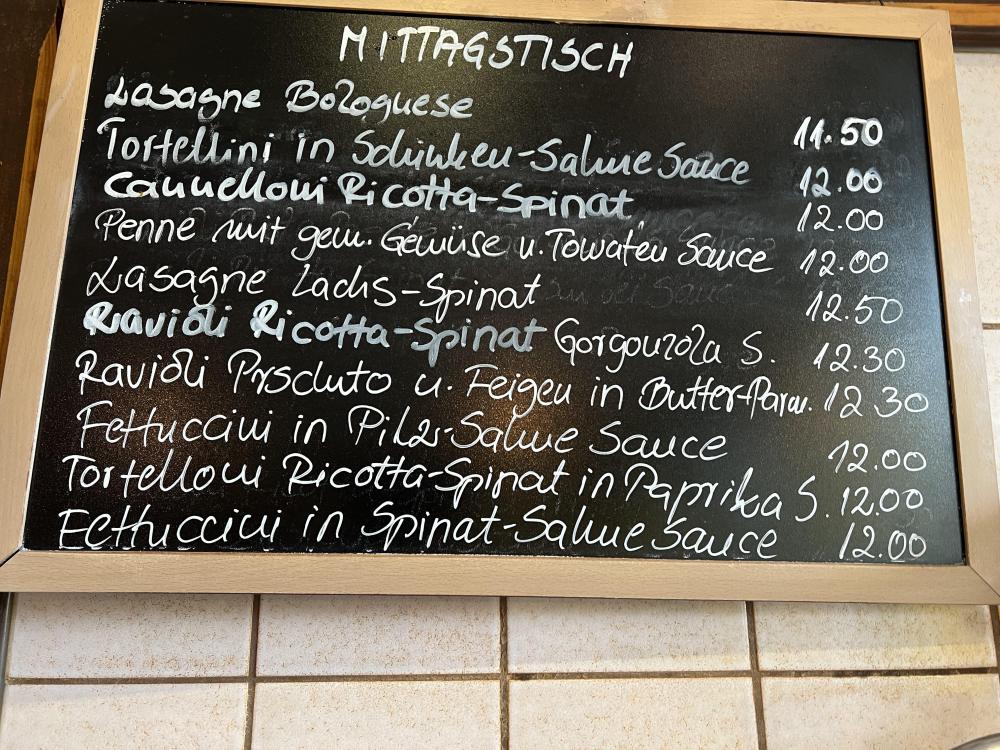 MITTAGSTISCH
Lasagne Bolognese 11.50
Tortellini in Schinken-Sahne Sauce 12.00
Cannelloni Ricotta-Spinat 12.00
Penne mit gem. Gemüse u. Tomaten Sauce 12.00
Lasagne Lachs-Spinat 12.50
Ravioli Ricotta-Spinat Gorgonzola S. 12.30
Ravioli Prsciuto u. Feigen in Butter-Parm. 12.30
Fettuccini in Pilz-Sahne Sauce 12.00
Tortelloni Ricotta-Spinat in Paprika S. 12.00
Fettuccini in Spinat-Sahne Sauce 12.00